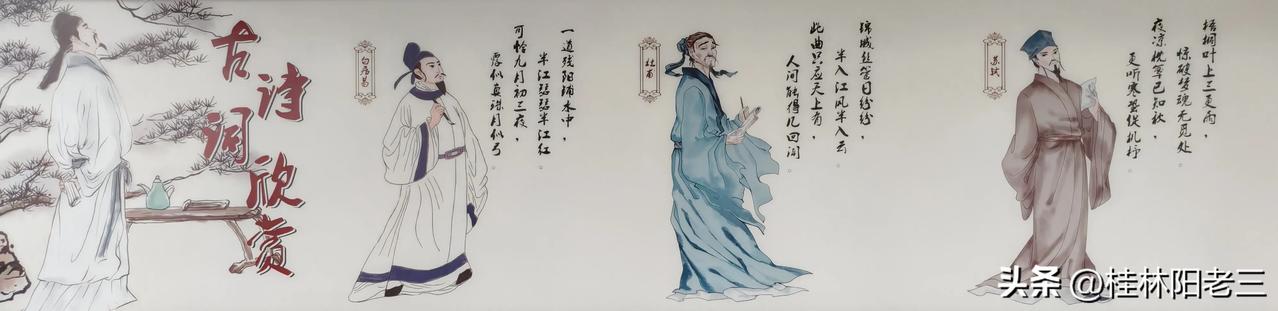 古诗词欣赏
白居易
一道残阳铺水中，
半江瑟瑟半江红。
可怜九月初三夜，
露似真珠月似弓。
杜甫
锦城丝管日纷纷，
半入江风半入云。
此曲只应天上有，
人间能得几回闻。
苏轼
梧桐叶上三更雨，
惊破梦魂无觅处。
夜凉枕簟已知秋，
更听寒蛩促机杼。
头条 @桂林阳老三